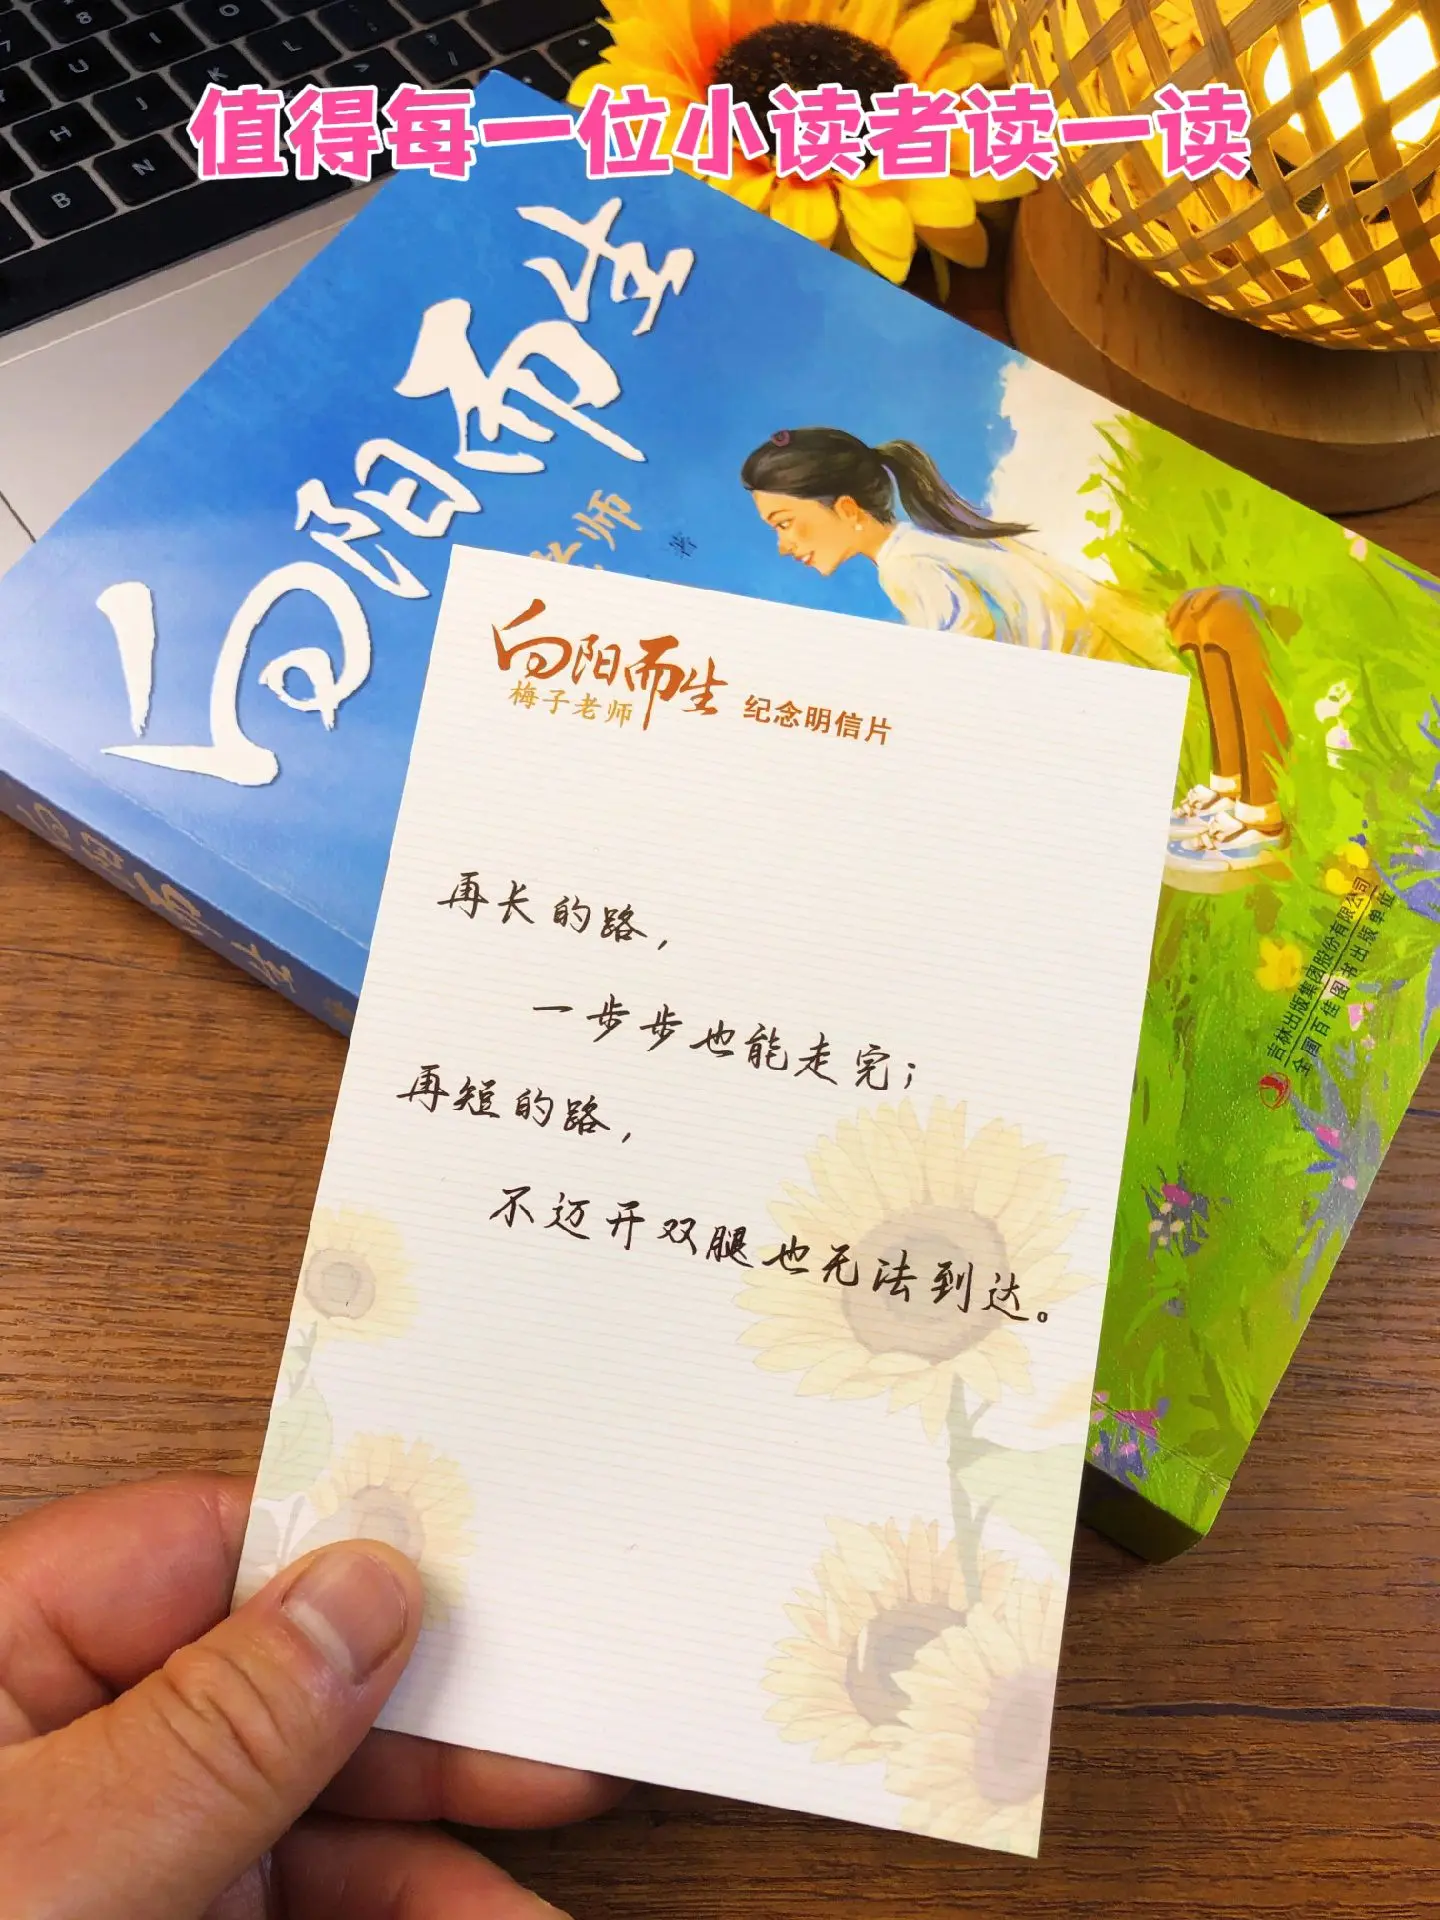 值得每一位小读者读一读
向阳而生
老师
著
向阳而生
梅子老师
纪念明信片
再长的路,
一步步也能走完;
再短的路,
不迈开双腿也无法到达。
吉林出版集团股份有限公司
全国百佳图书出版单位
向阳而生
8
K
L
J
H
N
B